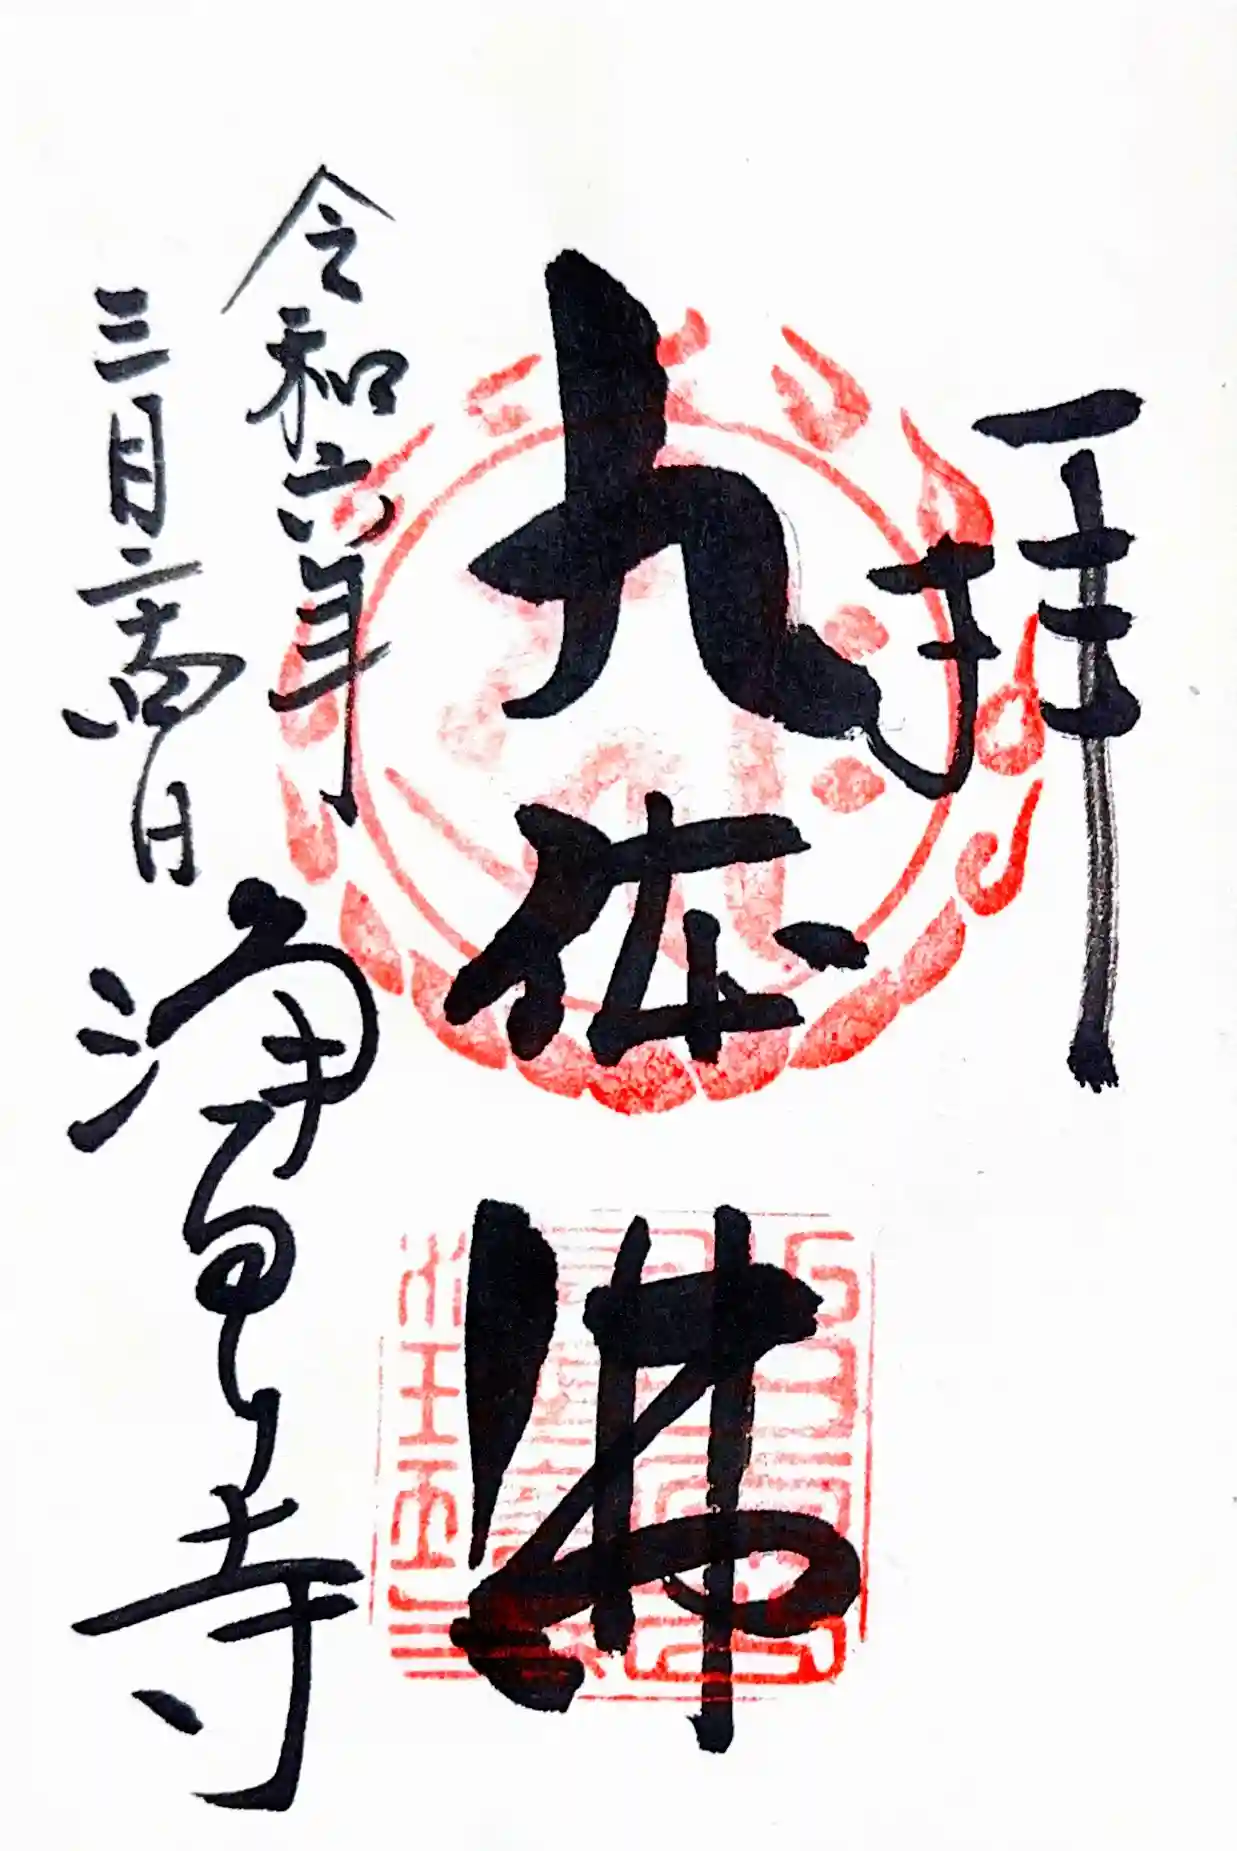 拝
九体佛
令和六年
三月二十四日
浄るり寺